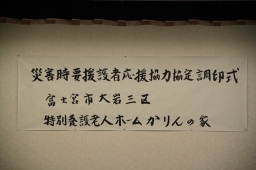 災害時要援護者応援協力協定調印式
富士宮市大岩三区
特別養護老人ホームかりんの家